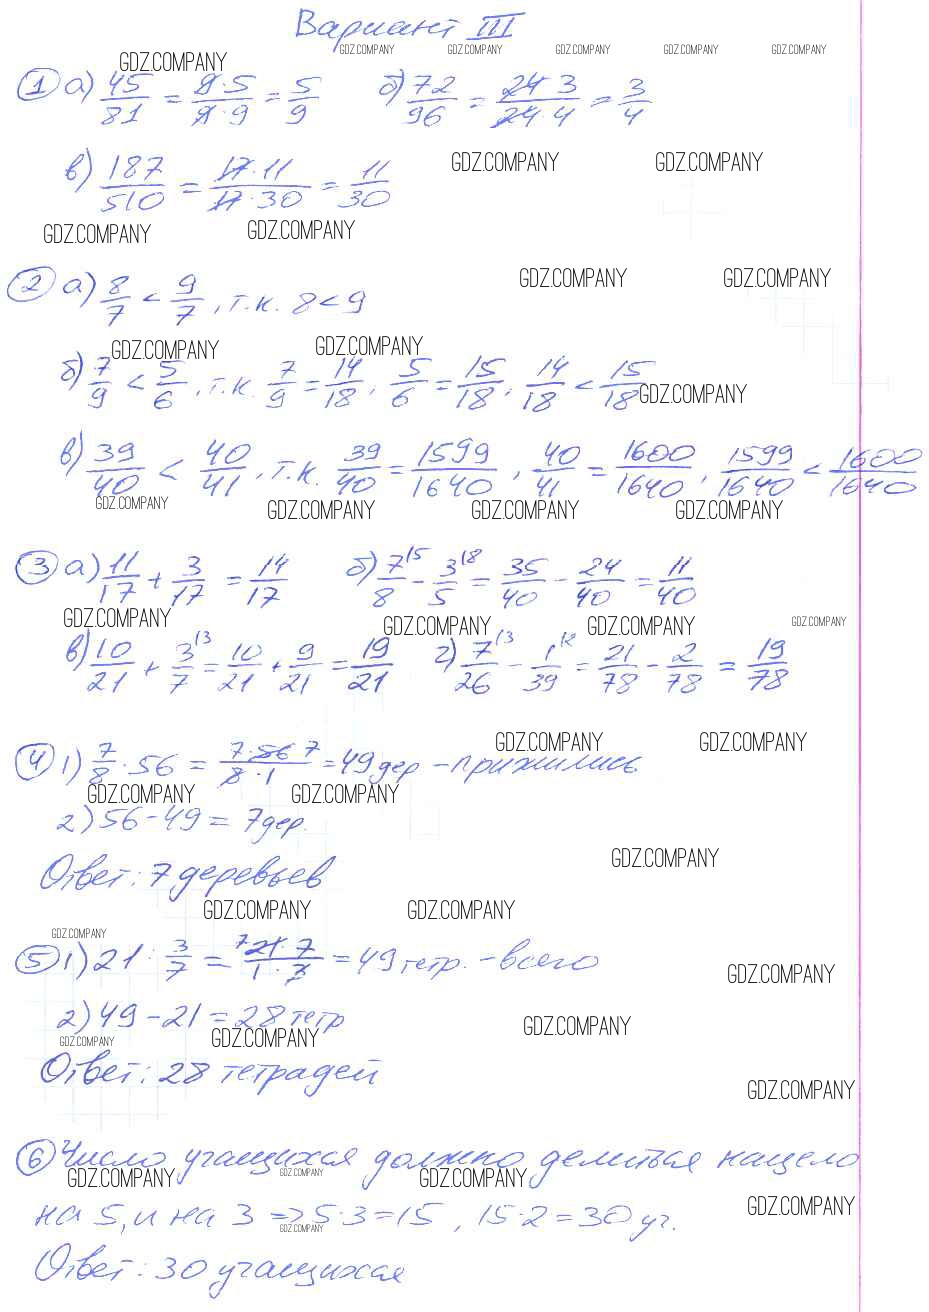 Вариант III
GDZ.COMPANY GDZ.COMPANY GDZ.COMPANY GDZ.COMPANY GDZ.COMPANY GDZ.COMPANY
① а) 45/81 = 9·5/9·9 = 5/9 б) 72/96 = 24·3/24·4 = 3/4
GDZ.COMPANY GDZ.COMPANY
в) 187/510 = 17·11/17·30 = 11/30
GDZ.COMPANY GDZ.COMPANY
GDZ.COMPANY GDZ.COMPANY
② а) 8/7 < 9/7, т.к. 8 < 9
GDZ.COMPANY GDZ.COMPANY
б) 7/9 < 5/6, т.к. 7/9 = 14/18, 5/6 = 15/18, 14/18 < 15/18 GDZ.COMPANY
в) 39/40 < 40/41, т.к. 39/40 = 1599/1640, 40/41 = 1600/1640, 1599/1640 < 1600/1640
GDZ.COMPANY GDZ.COMPANY GDZ.COMPANY GDZ.COMPANY
③ а) 11/17 + 3/17 = 14/17 б) 7/8 \5 - 3/5 \8 = 35/40 - 24/40 = 11/40
GDZ.COMPANY GDZ.COMPANY GDZ.COMPANY GDZ.COMPANY
в) 10/21 + 3/7 \3 = 10/21 + 9/21 = 19/21 г) 7/26 \3 - 1/39 \2 = 21/78 - 2/78 = 19/78
GDZ.COMPANY GDZ.COMPANY
④ 1) 7/8 · 56 = 7·56 7/8·1 = 49 дер - прижились
GDZ.COMPANY GDZ.COMPANY
2) 56 - 49 = 7 дер.
GDZ.COMPANY
Ответ: 7 деревьев
GDZ.COMPANY GDZ.COMPANY
GDZ.COMPANY
⑤ 1) 21 : 3/7 = 7 21·7/1·3 = 49 тетр. - всего
GDZ.COMPANY
2) 49 - 21 = 28 тетр
GDZ.COMPANY GDZ.COMPANY GDZ.COMPANY
Ответ: 28 тетрадей
GDZ.COMPANY
⑥ Число учащихся должно делиться нацело
GDZ.COMPANY GDZ.COMPANY GDZ.COMPANY
на 5, и на 3 => 5·3 = 15, 15·2 = 30 уч.
GDZ.COMPANY GDZ.COMPANY
Ответ: 30 учащихся